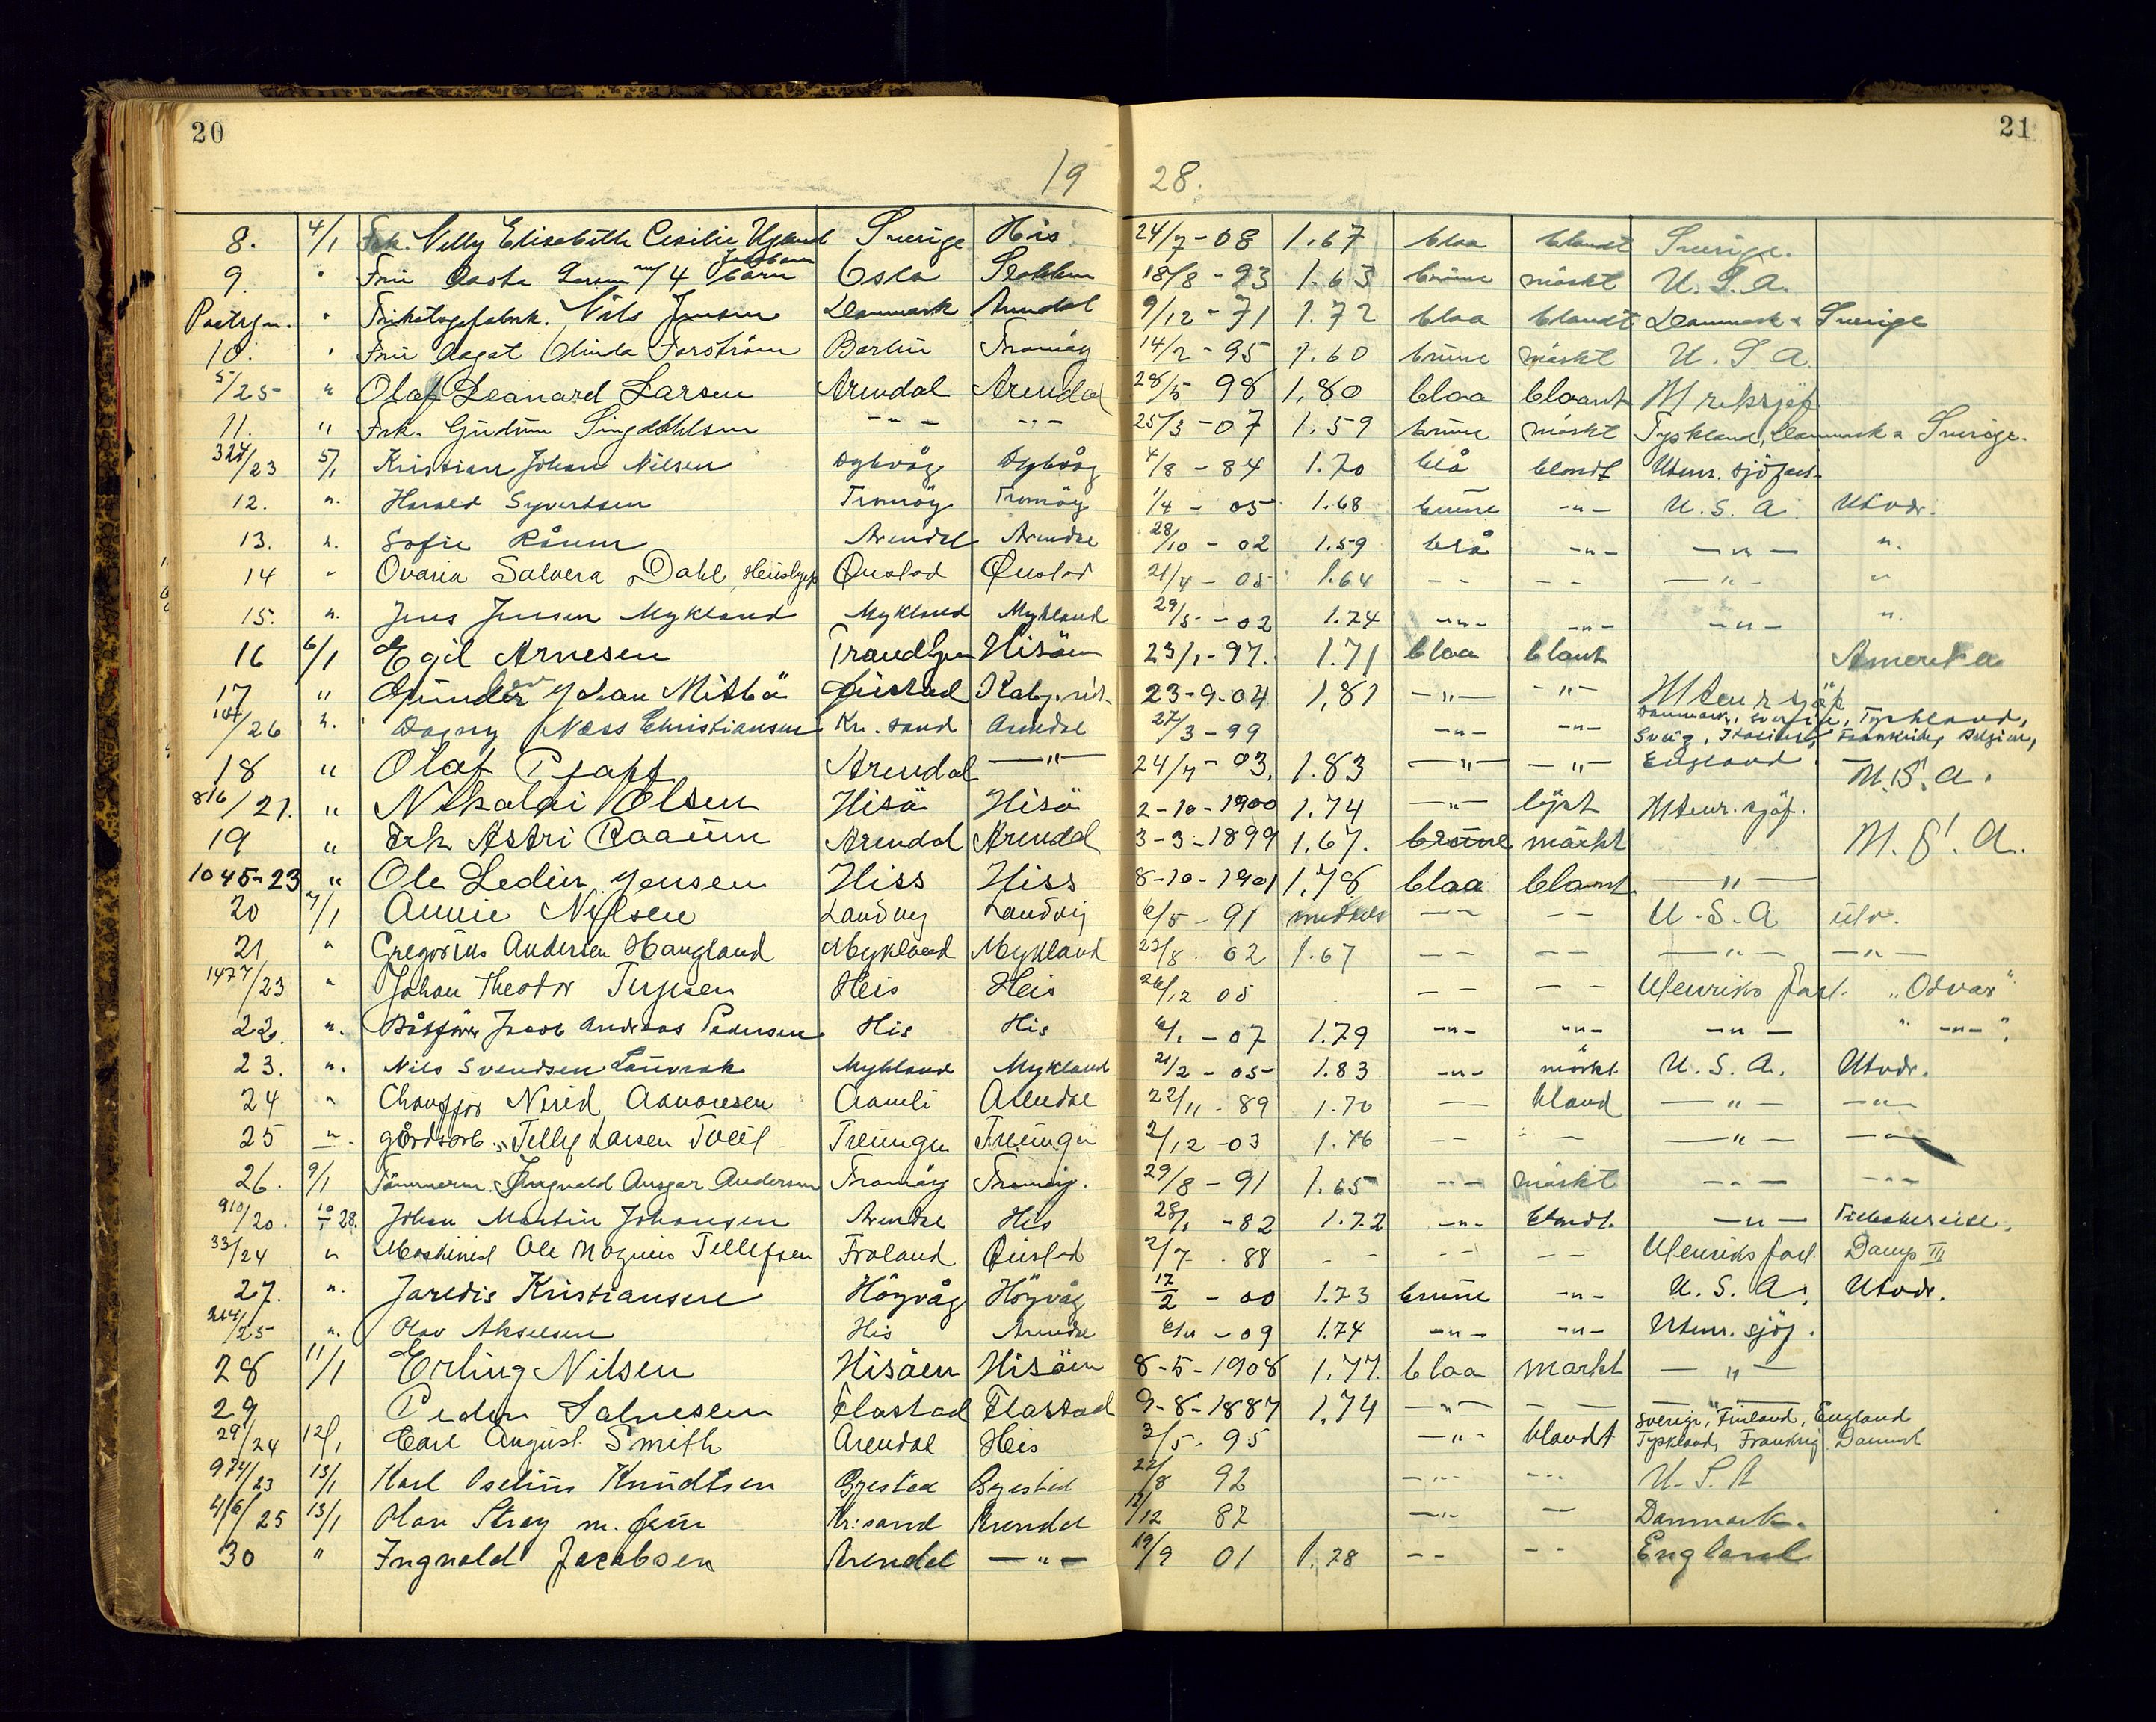 20
21
19 28.
8. 4/1 Frk. Nelly Elisabeth Cecilie Ugland Sverige His 24/7-08 1.67 blaa blandt Sverige.
9. " Fru Aasta Larsen m/4 børn Oslo 18/8-93 1.63 brune mörkt U.S.A.
" Trikotagefabrk. Nils Jensen Danmark Arendal 9/12-71 1.72 blaa blandt Danmark & Sverige
10. " Fru Aagot Olinda Forström Tromöy 14/2-95 1.60 brune mörkt U.S.A.
5/25 " Olaf Leonard Larsen Arendal Arendal 28/5 98 1,80 blaa blaant
11. " Frk. Gudrun Dahlsen - " - - " - 25/3-07 1.59 brune mörkt Tyskland, Danmark & Sverige.
324/23 5/1 Kristian Johan Nilsen Dybvåg Dybvåg 4/8-84 1.70 blå blondt Utenr. sjöfart
12. ". Harald Syvertsen Tromöy Tromöy 1/4-05 1.68 brune -"- U.S.A. Utvdr.
13. ". Sofie Råum Arendal Arendal 28/10-02 1.59 blå -"- -"- ".
14 " Salvera Dahl, Öiestad Öiestad 21/4-05 1.64 - - - - -"- "
15. ". Jens Jensen Mykland Mykland Mykland 29/5-02 1.74 -"- -"- -"- ".
16 6/1 Egil Arnesen Hisöen 23/1-97. 1.71 blaa blant Amerika
17 " Gunder Johan Mitbö Öiestad 23-9-04 1,81 -"- -"- Utenr sjöf
107/26 ". Dagny Næss Christiansen Kr. sand Arendal 27/3-99 -"- -"- Danmark, Sverige, Tyskland,
Sveiz, Italien, Frankrike, Belgien,
18 " Olaf Arendal -"- 24/7-03. 1.83 -"- -"- England U.S.A.
816/21. " Nikolai Olsen Hisö Hisö 2-10-1900 1.74 -"- lyst Utenr. sjöf.
19 " Frk Astri Raaum Arendal Arendal 3-3-1899 1.67. brune mörkt U.S.A.
1045-23 " Ole Ledin Jensen Hiss Hiss 8-10-1901 1,78 blaa blaant -"-
20 7/1 Annie Nilsen Landvig Landvig 6/5-91 middels -"- - - U.S.A utv.
21 " Gregorius Andersen Haugland Mykland Mykland 23/8. 02 1.67 - - - - -"- -"-
1477/23 " Johan Theodor Terjesen Heis Heis 26/12 05 - - - - Utenriks fart. "Odvar"
22. ". Båtfører Jacob Andreas Pedersen His His 6/1-07 1.79 -"- -"- -"- " -"-".
23. ". Nils Svendsen Lauvrak Mykland Mykland 21/2-05 1.83 -"- mörkt U.S.A. Utvdr.
24 " Chaufför Aanonsen Aamli Arendal 22/11-89 1.70 - - bland -"- -"-
25 " gårdsarb. Larsen Treungen Treungen 2/12-03 1.76 - - - - -"- -"-
26. 9/1 Tömmerm. Ingvald Ansgar Andersen Tromöy Tromöy. 29/8-91 1.65 -"- mörkt -"- -"-
910/20. 10/1 28. Johan Martin Johansen Arendal His 28/1-82 1.72 -"- blondt. -"- Tilbakereise.
33/24 " Maskinist Ole Magnus Tellefsen Froland Öiestad 2/7. 88 - - - - - - Utenriks fart. Damp III
27. ". Jaredis Kristiansen Höyvåg Höyvåg 17/2-00 1.73 brune -"- U.S.A. Utvdr.
214/25 ". Olav Akselsen His Arendal 6/11-09 1.74 -"- -"- Utenr. sjöf.
28 11/1 Erling Nilsen Hisöen Hisöen 8-5-1908 1,77. blaa mørkt -"-
29 Peder Salvesen Flostad Flostad 9-8-1887 1,74 -"- - - -"-
29/24 12/1 Carl August Smith Arendal Heis 2/5. 95 -"- blandt Sverige, Finland, England
Tyskland, Frankrig Danmark
974/23 13/1 Karl Knudtsen Gjestad 22/8 92 -"- -"- U.S.A
416/25 13/1 Olav Stray m. frue Kr:sand Arendal 12/12 87 -"- - Danmark.
30 " Ingvald Jacobsen Arendal -"- 19/9 01 1.78 - - - - England